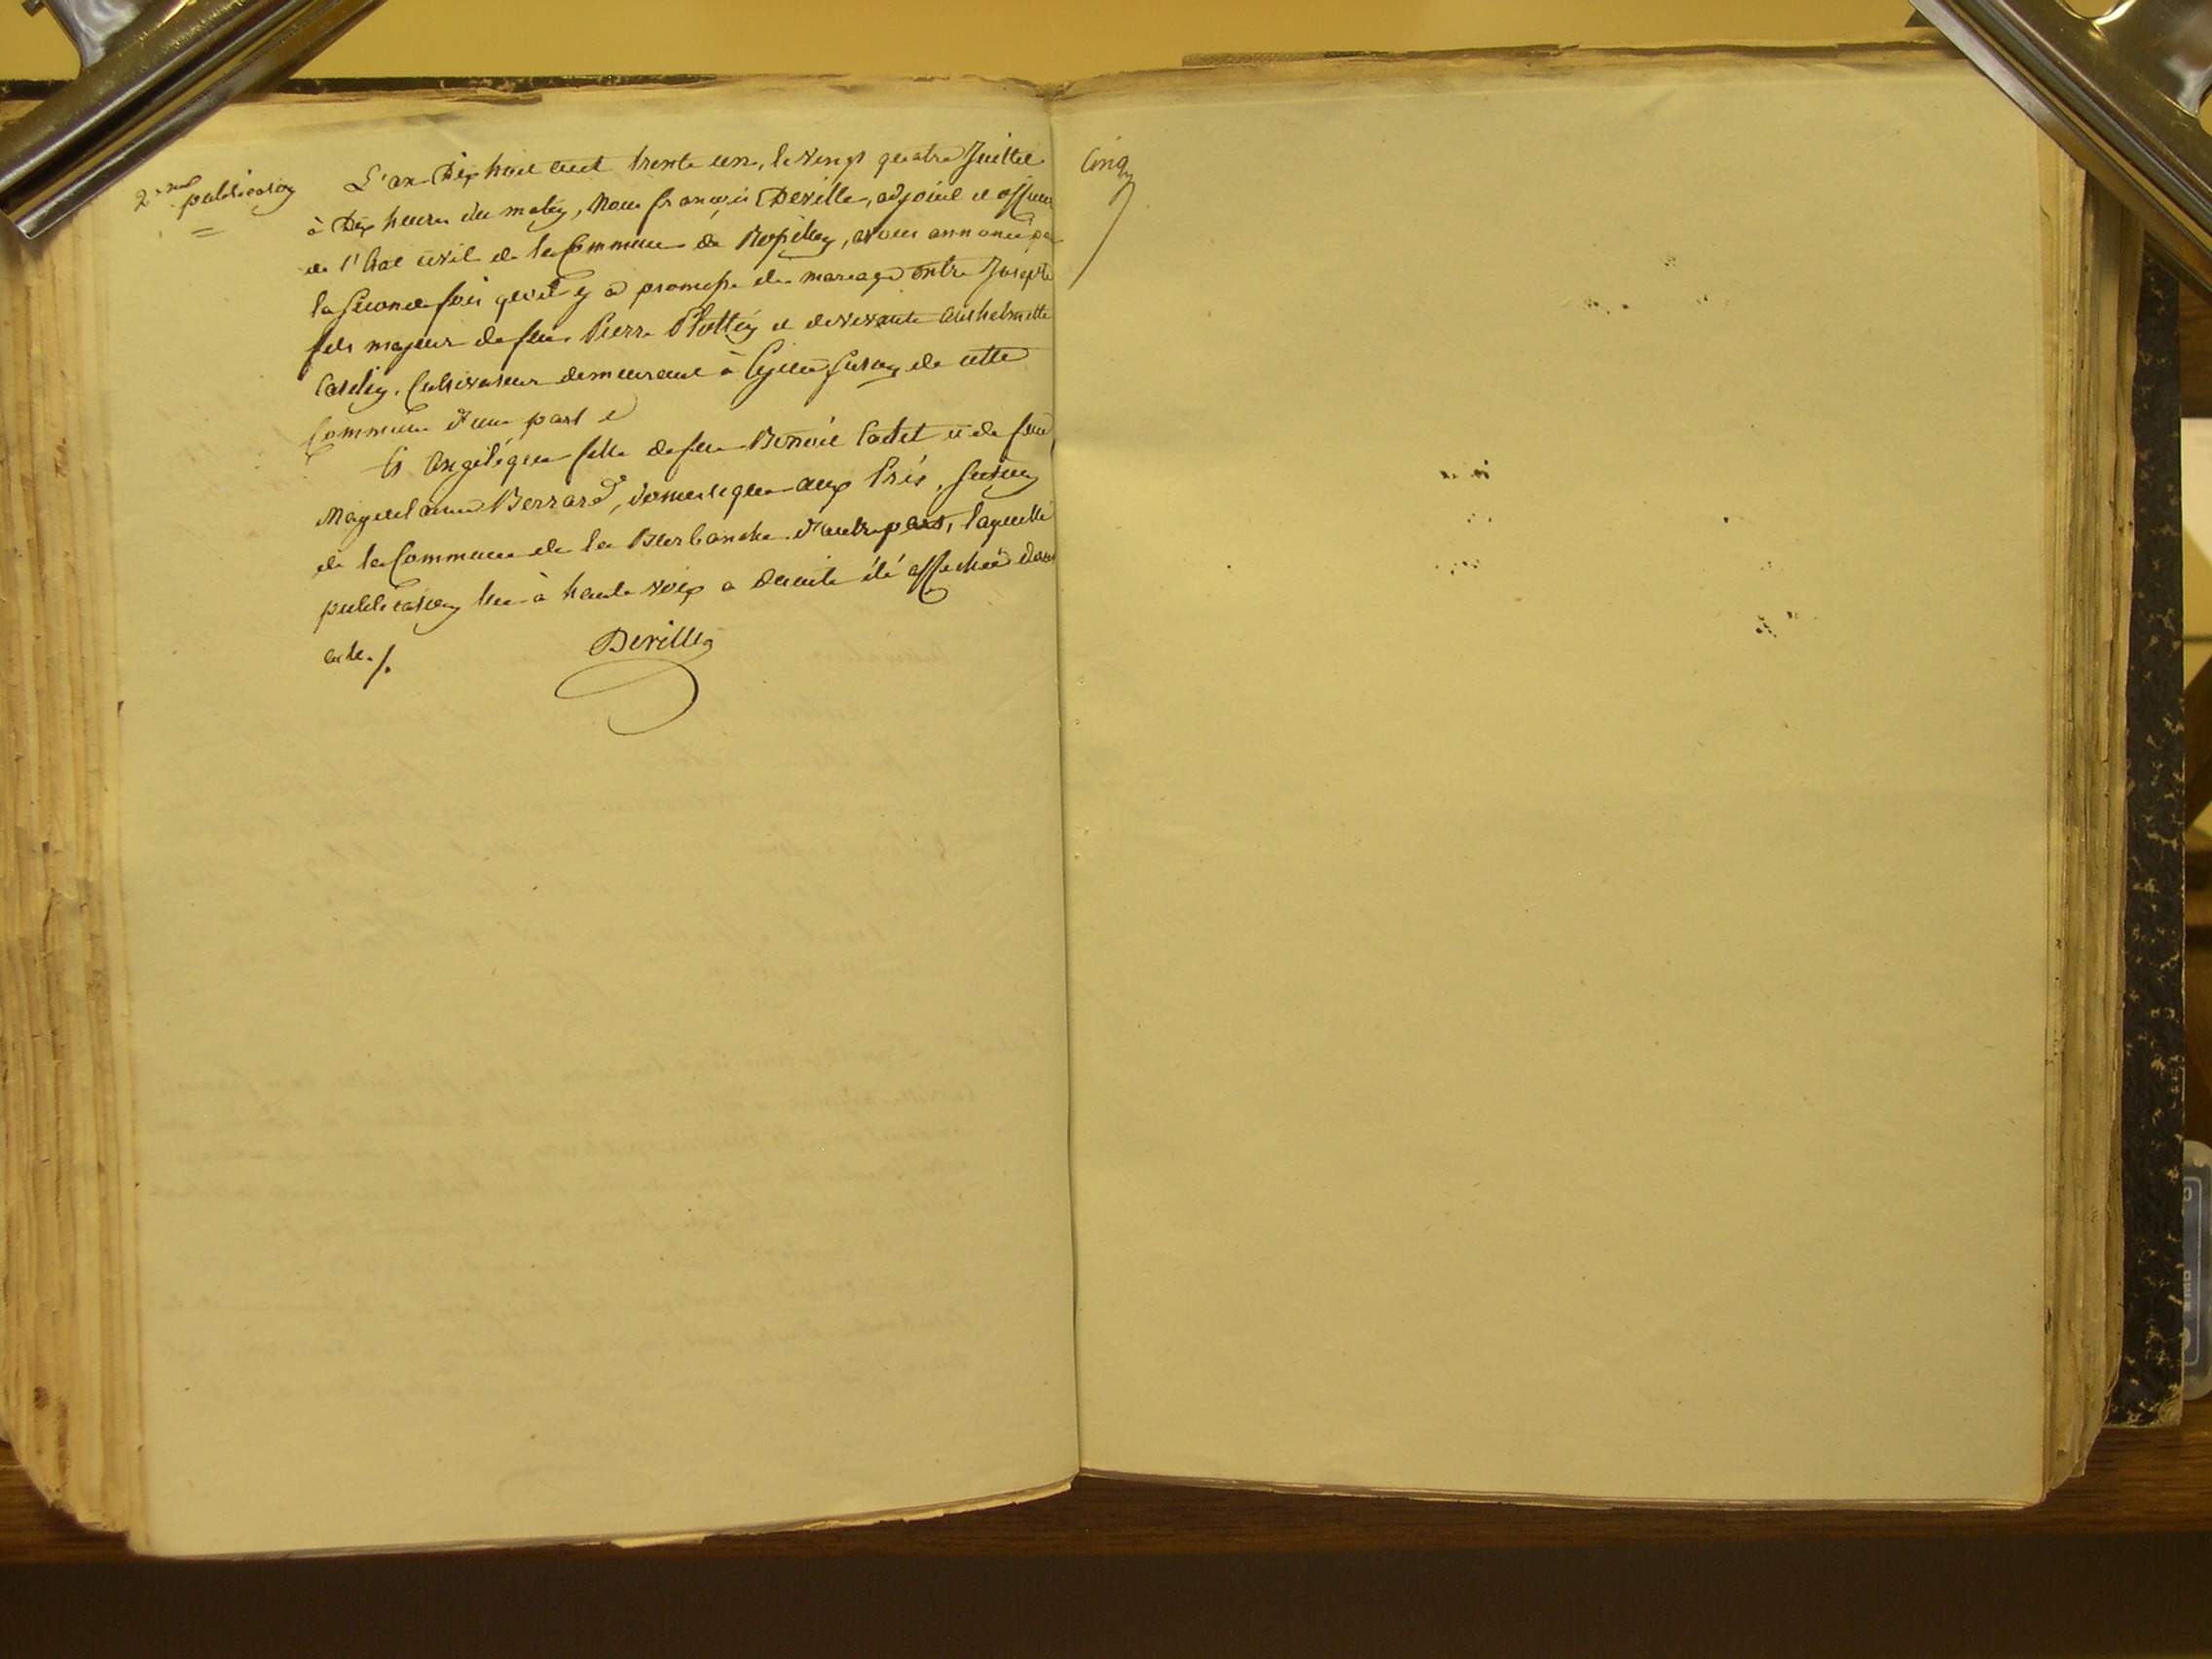 2eme publication
L'an Dix huit cent trente un, le vingt quatre Juillet
à Dix heures du matin, Nous françois Deville, adjoint et officier
de l'état civil de la Commune de Rossillon, avons annoncé pour
la seconde fois qu'il y a promesse de mariage entre Joseph
fils majeur de feu Pierre Plottin et de vivante Anthelmette
Cultivateur demeurant à de cette
Commune d'une part et
Et Angélique fille de feu Benoit Cadet et de feue
Magdelaine Berrard, domestique aux Prés,
de la Commune de la Burbanche d'autre part, laquelle
publication lue à haute voix a ensuite été affichée dans
acte ./.
Deville
Cinq